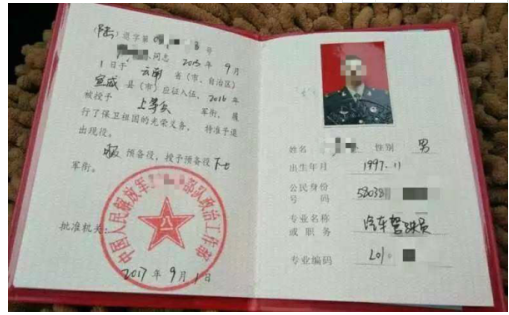 (陆) 退字第 号
同志 2015 年 9 月
1 日于 云南 省(市、自治区)
宣威 县(市)应征入伍, 2016 年
被授予 上等兵 军衔。履
行了保卫祖国的光荣义务。特准予退
出现役。
服 预备役,授予预备役 下士
军衔。
批准机关:
中国人民解放军 部队政治工作部
2017 年 9 月 1 日
姓名 性别 男
出生年月 1997.11
公民身份
号 码 53038
专业名称 汽车驾驶员
或 职 务
专业编码 201